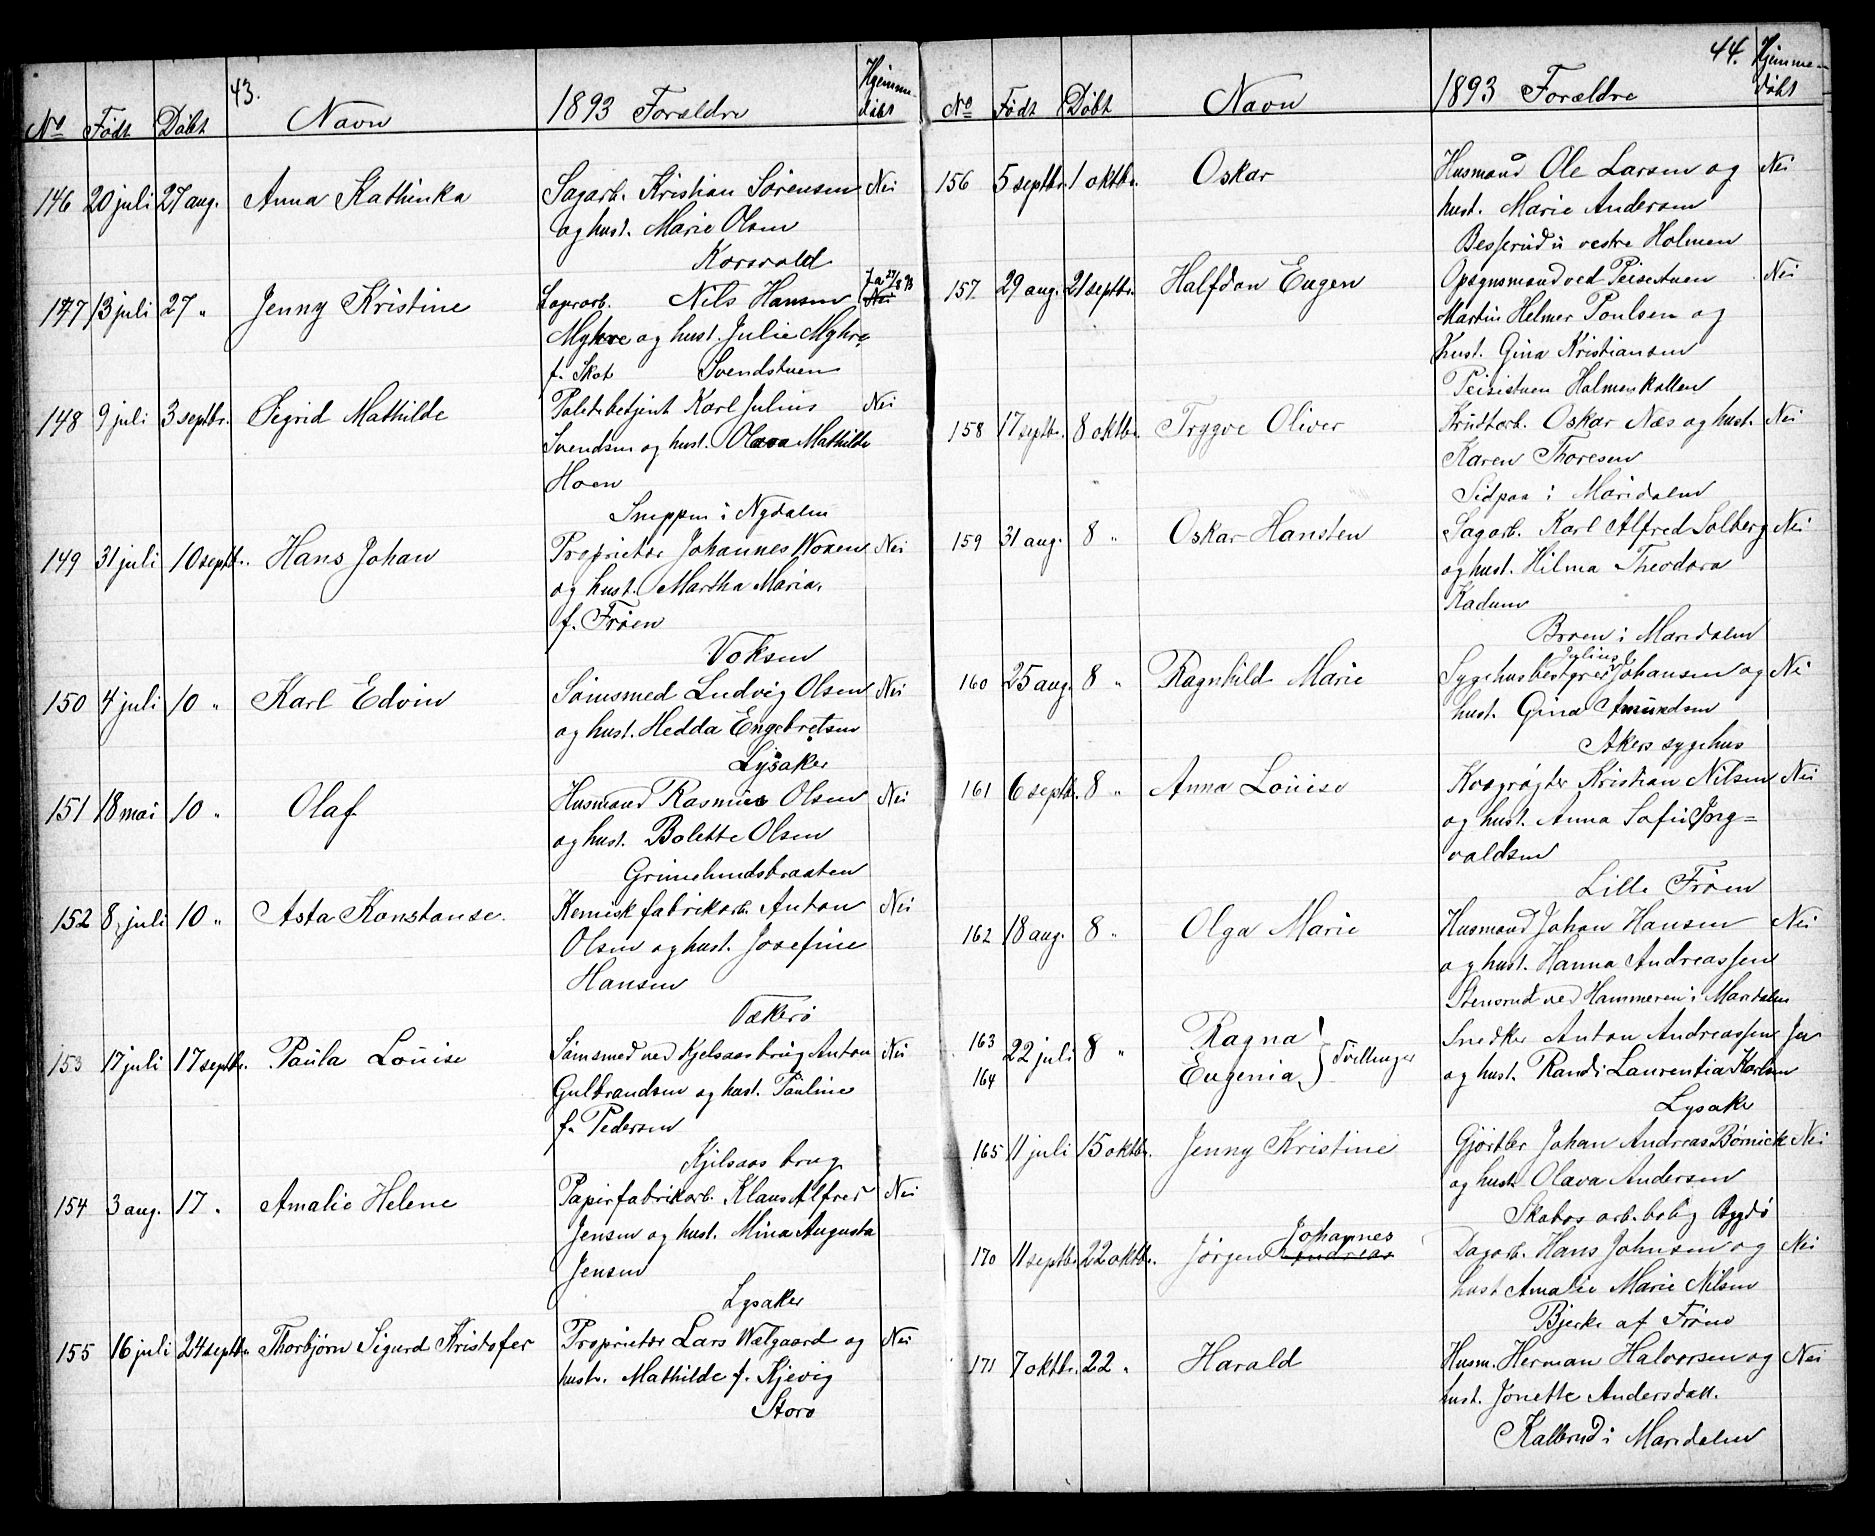 43.
No Født Døbt Navn 1893 Forældre Hjemmedøbt
146 20 juli 27 aug. Anna Kathinka Sagarb. Kristian Sørensen Nei
og hust. Marie Olsen
Korsvold
147 13 juli 27 " Jenny Kristine Nils Hansen Ja 27/8 93 Nei
Myhre og hust. Julie Myhre
f. Skot Svendstuen
148 9 juli 3 septbr. Sigrid Mathilde Politibetjent Karl Julius Nei
Svendsen og hust. Olava Mathilde
Hoen
Snippen i Nydalen
149 31 juli 10 septbr. Hans Johan Proprietær Johannes Woxen Nei
og hust. Martha Maria,
f. Frøen
Voksen
150 4 juli 10 " Karl Edvin Sømsmed Ludvig Olsen Nei
og hust. Hedda Engebretsen
Lysaker
151 18 mai 10 " Olaf Husmand Rasmus Olsen Nei
og hust. Bolette Olsen
Grimelundsbraaten
152 8 juli 10 " Asta Konstanse. Kemisk fabrikarb. Anton Nei
Olsen og hust. Josefine
Hansen
Vækerø
153 17 juli 17 septbr. Paula Louise Sømsmed ved Kjelsaas brug Anton Nei
Gulbrandsen og hust. Pauline
f. Pedersen
Kjelsaas brug
154 3 aug. 17 " Amalie Helene Papirfabrikarb. Klaus Alfred Nei
Jensen og hust. Mina Augusta
Jensen
Lysaker
155 16 juli 24 septbr. Thorbjørn Sigurd Kristofer Proprietær Lars Walgaard og Nei
hust. Mathilde f. Kjevig
Storo
44.
No Født Døbt Navn 1893 Forældre Hjemmedøbt
156 5 septbr. 1 oktbr. Oskar Husmand Ole Larsen og Nei
hust. Marie Andersen
Besserud u. vestre Holmen
157. 29 aug. 21 septbr. Halfdan Eugen Opsynsmand ved Peisestuen Nei
Martin Helmer Poulsen og
hust. Gina Kristiansen
Peisestuen Holmenkollen
158 17 septbr. 8 oktbr. Tryggve Oliver Krudtarb. Oskar Næs og hust. Nei
Karen Thoresen
Sidpaa i Maridalen
159 31 aug. 8 " Oskar Hansten Sagarb. Karl Alfred Solberg Nei
og hust. Hilma Theodora
Kadum
Broen i Maridalen
160 25 aug. 8 " Ragnhild Marie Sygehusbestyrer Julius Johansen og Nei
hust. Gina Amundsen
Akers sygehus
161 6 septbr. 8 " Anna Louise Kvægrøgter Kristian Nilsen Nei
og hust. Anna Sofie Ing=
valdsen
Lille Frøen
162 18 aug. 8 " Olga Marie Husmand Johan Hansen Nei
og hust. Hanna Andreassen
Stensrud ved Hammeren i Maridalen
163 Ragna Snedker Anton Andreassen Ja
22 juli 8 " Tvillinger
164 Eugenia og hust. Randi Laurentia Karlsen
Lysaker
165 11 juli 15 oktbr. Jenny Kristine Gjørtler Johan Andreas Børnick Nei
og hust. Olava Andersen
Skabos arb.bolig Bygdø
170 11 septbr. 22 oktbr. Jørgen Johannes Andreas Dagarb. Hans Johnsen og Nei
hust Amalie Marie Nilsen
Bjerke af Frøen
171 7 oktbr. 22 " Harald Husm. Herman Halvorsen og Nei
hust. Jonette Andersdatt.
Kallerud i Maridalen